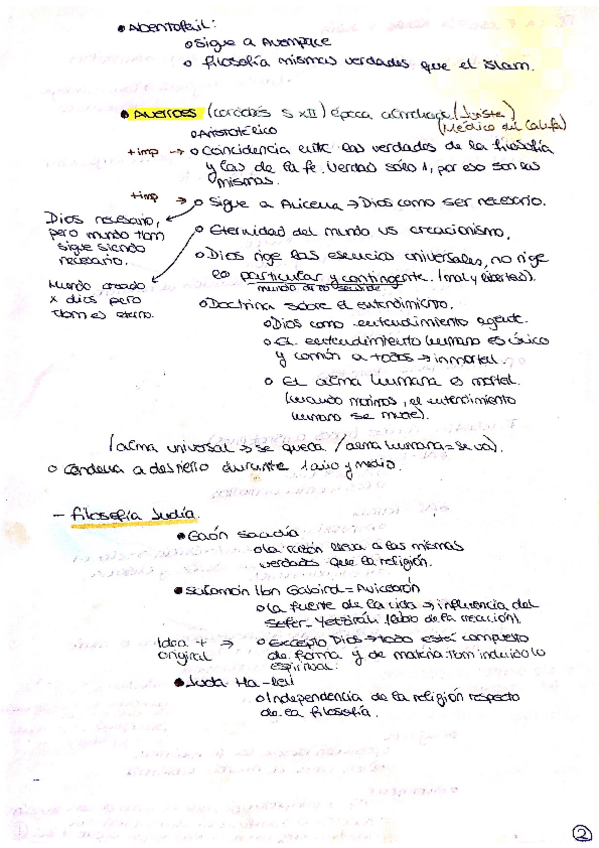 • Abentofail:
o Sigue a Avempace
o filosofía mismas verdades que el islam.
• Averroes (Cordobés S XII) época almohade (Jurista)
(Médico del Califa)
o Aristotélico
+imp → o Coincidencia entre las verdades de la filosofía
y las de la fe. Verdad sólo 1, por eso son las
mismas.
+imp → o Sigue a Avicena → Dios como ser necesario.
Dios necesario,
pero mundo tbm
sigue siendo
necesario.
o Eternidad del mundo vs creacionismo.
Mundo creado
x dios, pero
tbm es eterno.
o Dios rige las esencias universales, no rige
lo particular y contingente. (mal y libertad).
o Doctrina sobre el entendimiento.
o Dios como entendimiento agente.
o El entendimiento humano es único
y común a todos → inmortal.
o El alma humana es mortal.
(cuando morimos, el entendimiento
humano se muere).
(alma universal → se queda / alma humana = se va).
o Condena a destierro durante 1 año y medio.
- Filosofía Judía.
• Gaón Saadía
o La razón lleva a las mismas
verdades que la religión.
• Salomón Ibn Gabirol = Avicebrón
o La fuente de la vida → influencia del
Sefer-Yetzirah (libro de la creación).
Idea +
original → o Excepto Dios → todo está compuesto
de forma y de materia. Tbm incluido lo
espiritual.
• Judá Ha-Leví
o Independencia de la religión respecto
de la filosofía.
2